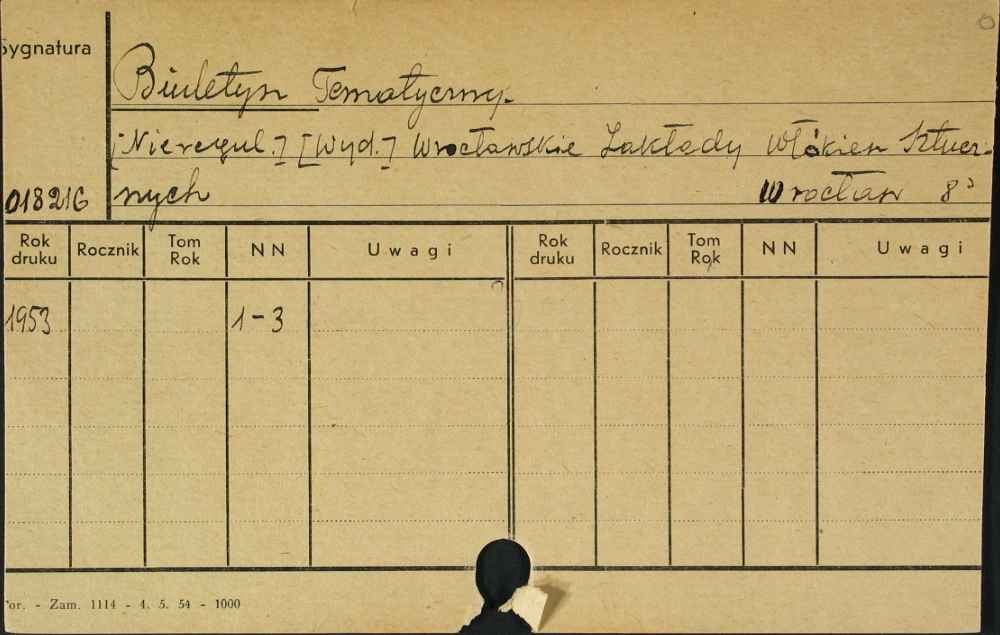 Sygnatura
Biuletyn Tematyczny.
[Nieregul.] [Wyd.] Wrocławskie Zakłady Włókien Sztucz-
018216 nych Wrocław 8°
Rok druku Rocznik Tom Rok NN Uwagi Rok druku Rocznik Tom Rok NN Uwagi
1953 1-3
or. - Zam. 1114 - 4. 5. 54 - 1000